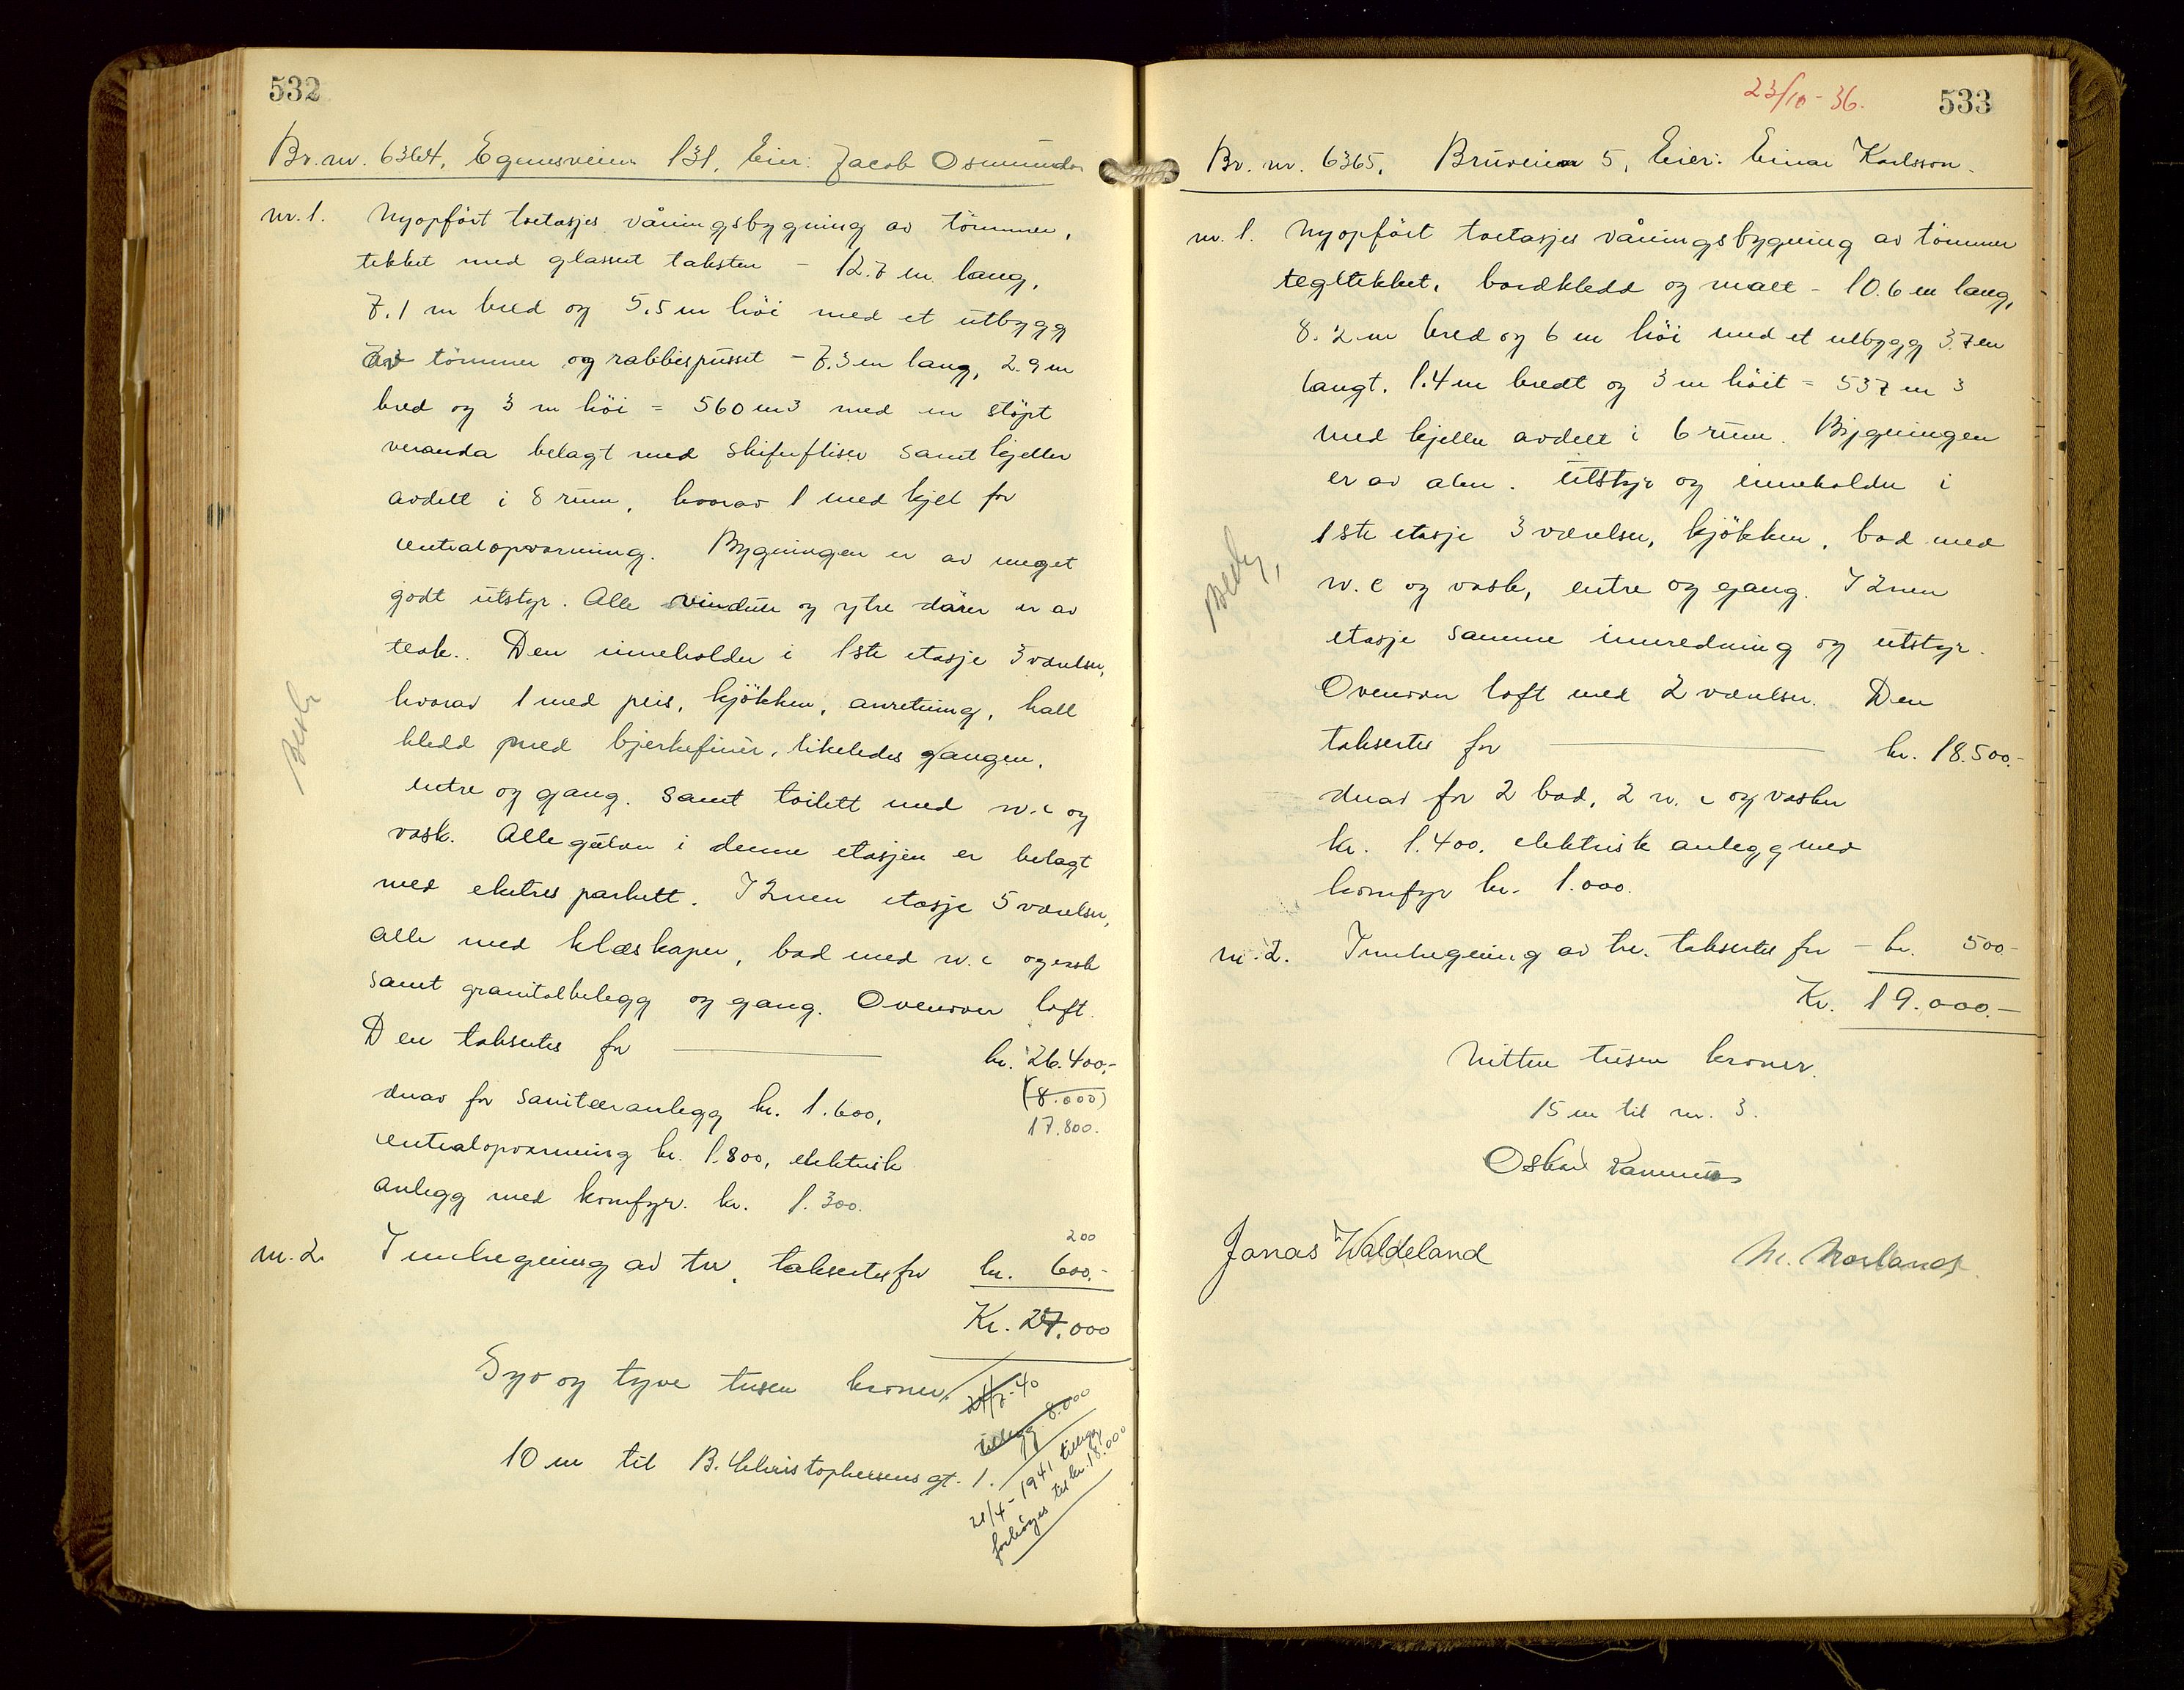 532
Br. nr. 6364, Eganesveien 131. Eier: Jacob Osmunds
nr. 1. Nyopført toetasjes våningsbygning av tömmer,
tekket med glassert taksten - 12.7 m lang,
7.1 m bred og 5.5 m höi med et utbygg
av tömmer og rabbespusset - 7.3 m lang, 2.9 m
bred og 3 m höi = 560 m3 med en stöpt
veranda belagt med skiferfliser samt kjeller
avdelt i 8 rum, hvorav 1 med kjel for
centralopvarming. Bygningen er av meget
godt utstyr. Alle vinduer og ytre dörer er av
teak. Den inneholder i 1ste etasje 3 værelser,
hvorav 1 med peis, kjökken, anretning, hall
kledd med bjerkefinér, likeledes gangen,
entre og gang. samt toilett med w.c og
vask. Alle gulver i denne etasjen er belagt
med eketres parkett. I 2nen etasje 5 værelser,
alle med klæskaper, bad med w.c og vask
samt granitolbelegg og gang. Ovenover loft.
Den takseres for kr. 26.400,-
(8.000)
derav for sanitæranlegg kr. 1.600, 17.800.
centralopvarming kr. 1.800, elektrisk
anlegg med komfyr. kr. 1.300.
200
nr. 2. Innhegning av tre, takseres for kr. 600,-
Kr. 27.000
Syv og tyve tusen kroner
24/2-40
tillegg 8.000
10 m til B. Christophersens gt. 1.
21/4-1941 tillegg
forhöyes til kr. 18.000
23/10-36.
533
Br. nr. 6365, Brüveien 5, Eier: Einar Karlsson.
nr. 1. Nyopfört toetasjes våningsbygning av tömmer
tegltekket, bordkledd og malt - 10.6 m lang,
8.2 m bred og 6 m höi med et utbygg 3.7 m
langt, 1.4 m bredt og 3 m höit = 537 m3
med kjeller avdelt i 6 rum. Bygningen
er av alm. utstyr og inneholder i
1ste etasje 3 værelser, kjökken, bad med
w.c og vask, entre og gang. I 2nen
etasje samme innredning og utstyr.
Ovenover loft med 2 værelser. Den
takseres for kr. 18.500.-
derav for 2 bad, 2 w.c og vasker
kr. 1.400, elektrisk anlegg med
komfyr kr. 1.000.
nr. 2. Innhegning av tre. takseres for - kr. 500.-
Kr. 19.000.-
Nitten tusen kroner.
15 m til nr. 3.
Oskar Rasmussen
Jonas Waldeland